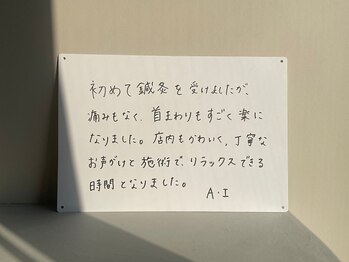 初めて鍼灸を受けましたが、
痛みもなく、首まわりもすごく楽に
なりました。店内もかわいく、丁寧な
お声がけと施術で、リラックスできる
時間となりました。
A・I